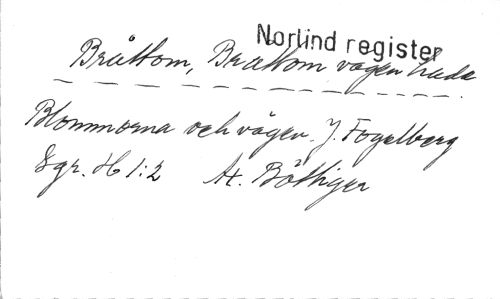 Norlind register
Bråttom, Bråttom vågen hade
Blommorna och vågen. J. Fogelberg
Sgr. H 1:2 At. Böttiger